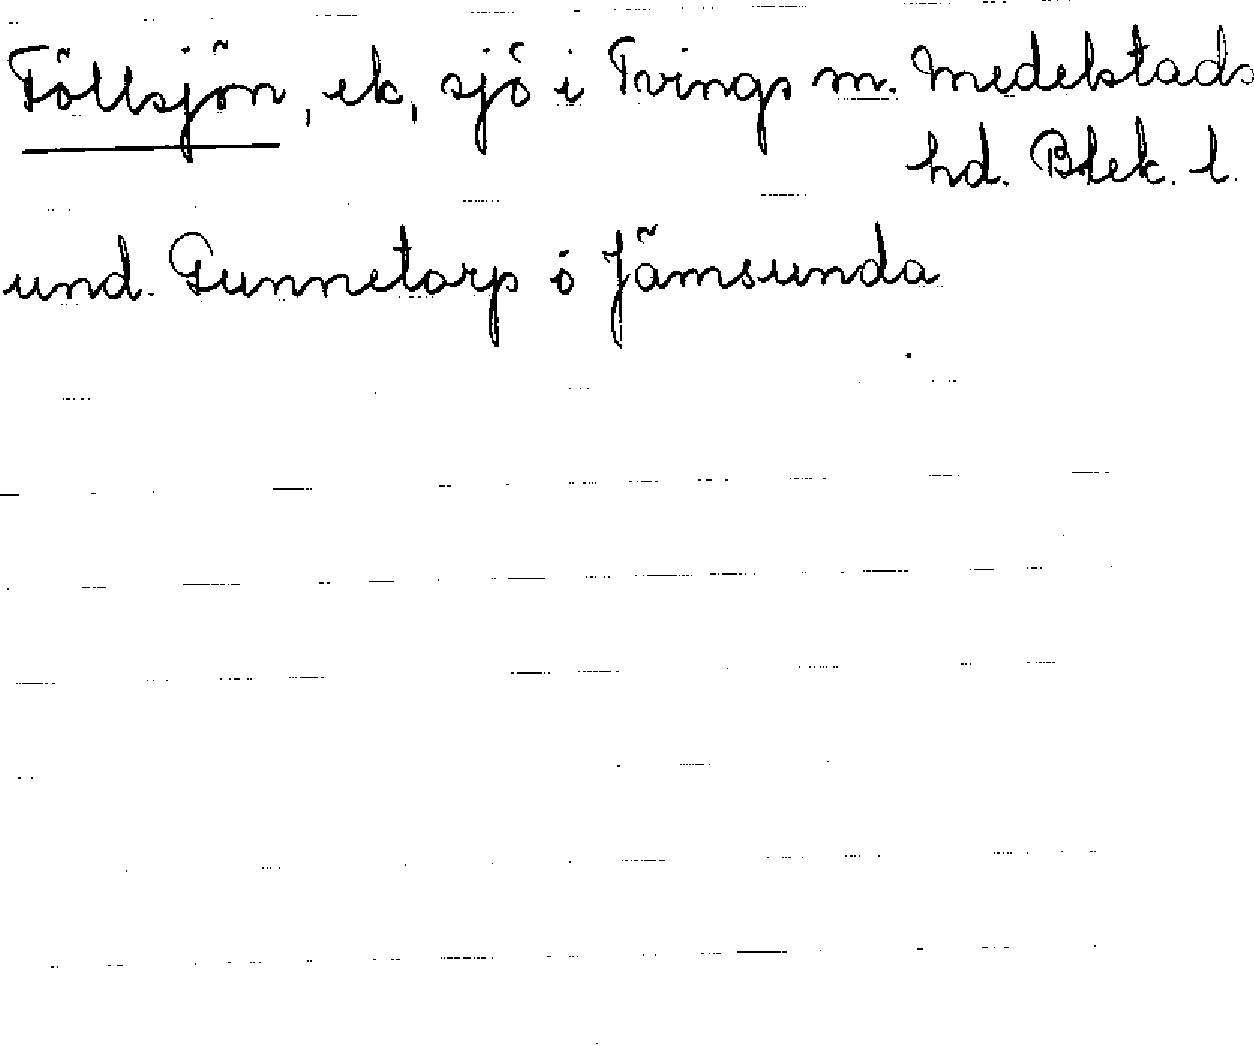 Töllsjön, ek, sjö i Tvings sn. Medelstads
hd. Blek. l.
und. Gunnetorp o Jämsunda